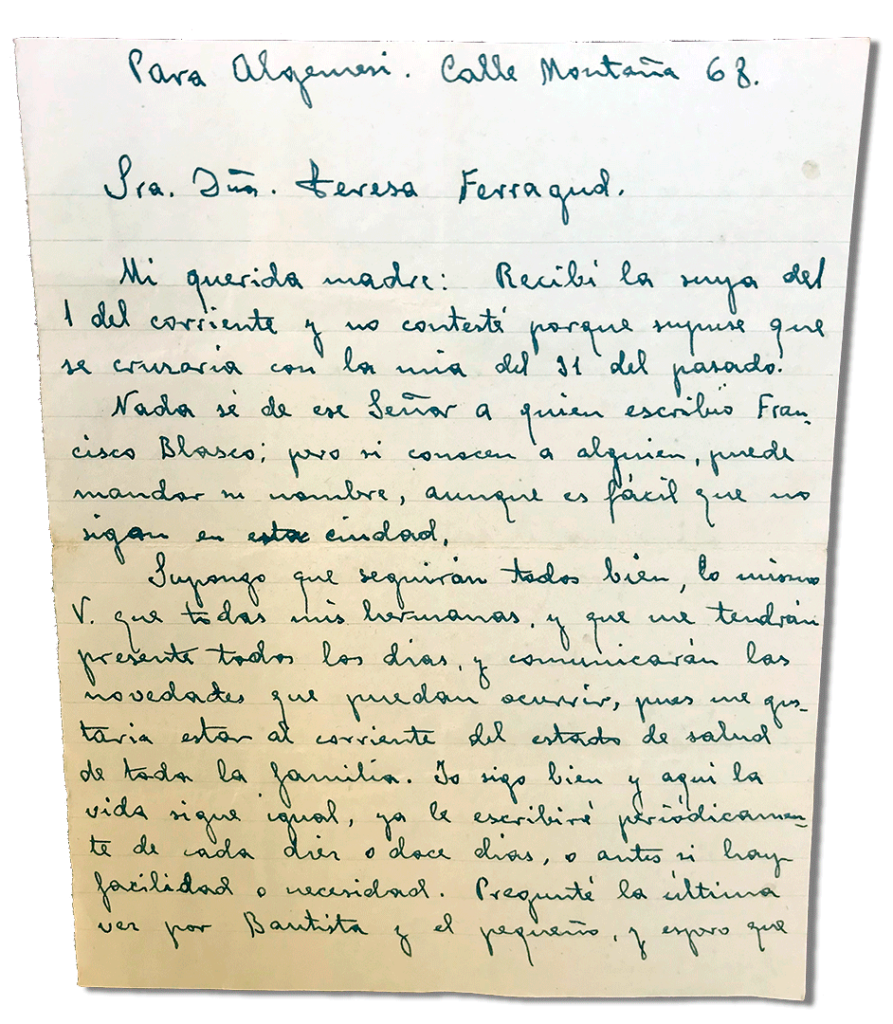 Para Algemesi. Calle Montaña 68.
Sra. Dña. Teresa Ferragud.
Mi querida madre: Recibí la suya del
1 del corriente y no contesté porque supuse que
se cruzaria con la mia del 31 del pasado.
Nada sé de ese Señor a quien escribió Fran-
cisco Blasco; pero si conocen a alguien, puede
mandar su nombre, aunque es fácil que no
sigan en esta ciudad.
Supongo que seguirán todos bien, lo mismo
V. que todas mis hermanas, y que me tendrán
presente todos los dias, y comunicarán las
novedades que puedan ocurrir, pues me gus-
taria estar al corriente del estado de salud
de toda la familia. Yo sigo bien y aqui la
vida sigue igual, ya le escribiré periódicamen-
te de cada diez o doce dias, o antes si hay
facilidad o necesidad. Pregunté la última
vez por Bautista y el pequeño, y espero que